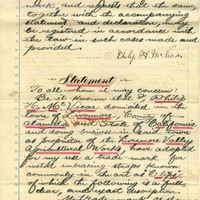 mark, and requests that the same,
together with the accompanying
statement and declaration, may
be registered in accordance with
the law in such cases made and
provided.
Philip H. McVicar
Statement
To all whom it may concern:
Be it known that I, Philip
H. McVicar domiciled in the
town of Livermore, County of
Alameda State of California
and doing business in said town
as proprietor of the Livermore Valley
Agricultural Works, have adopted
for my use a trade mark for
metal
commonly in the art as Clips
of which the following is a full,
clear and exact description.
My trade mark